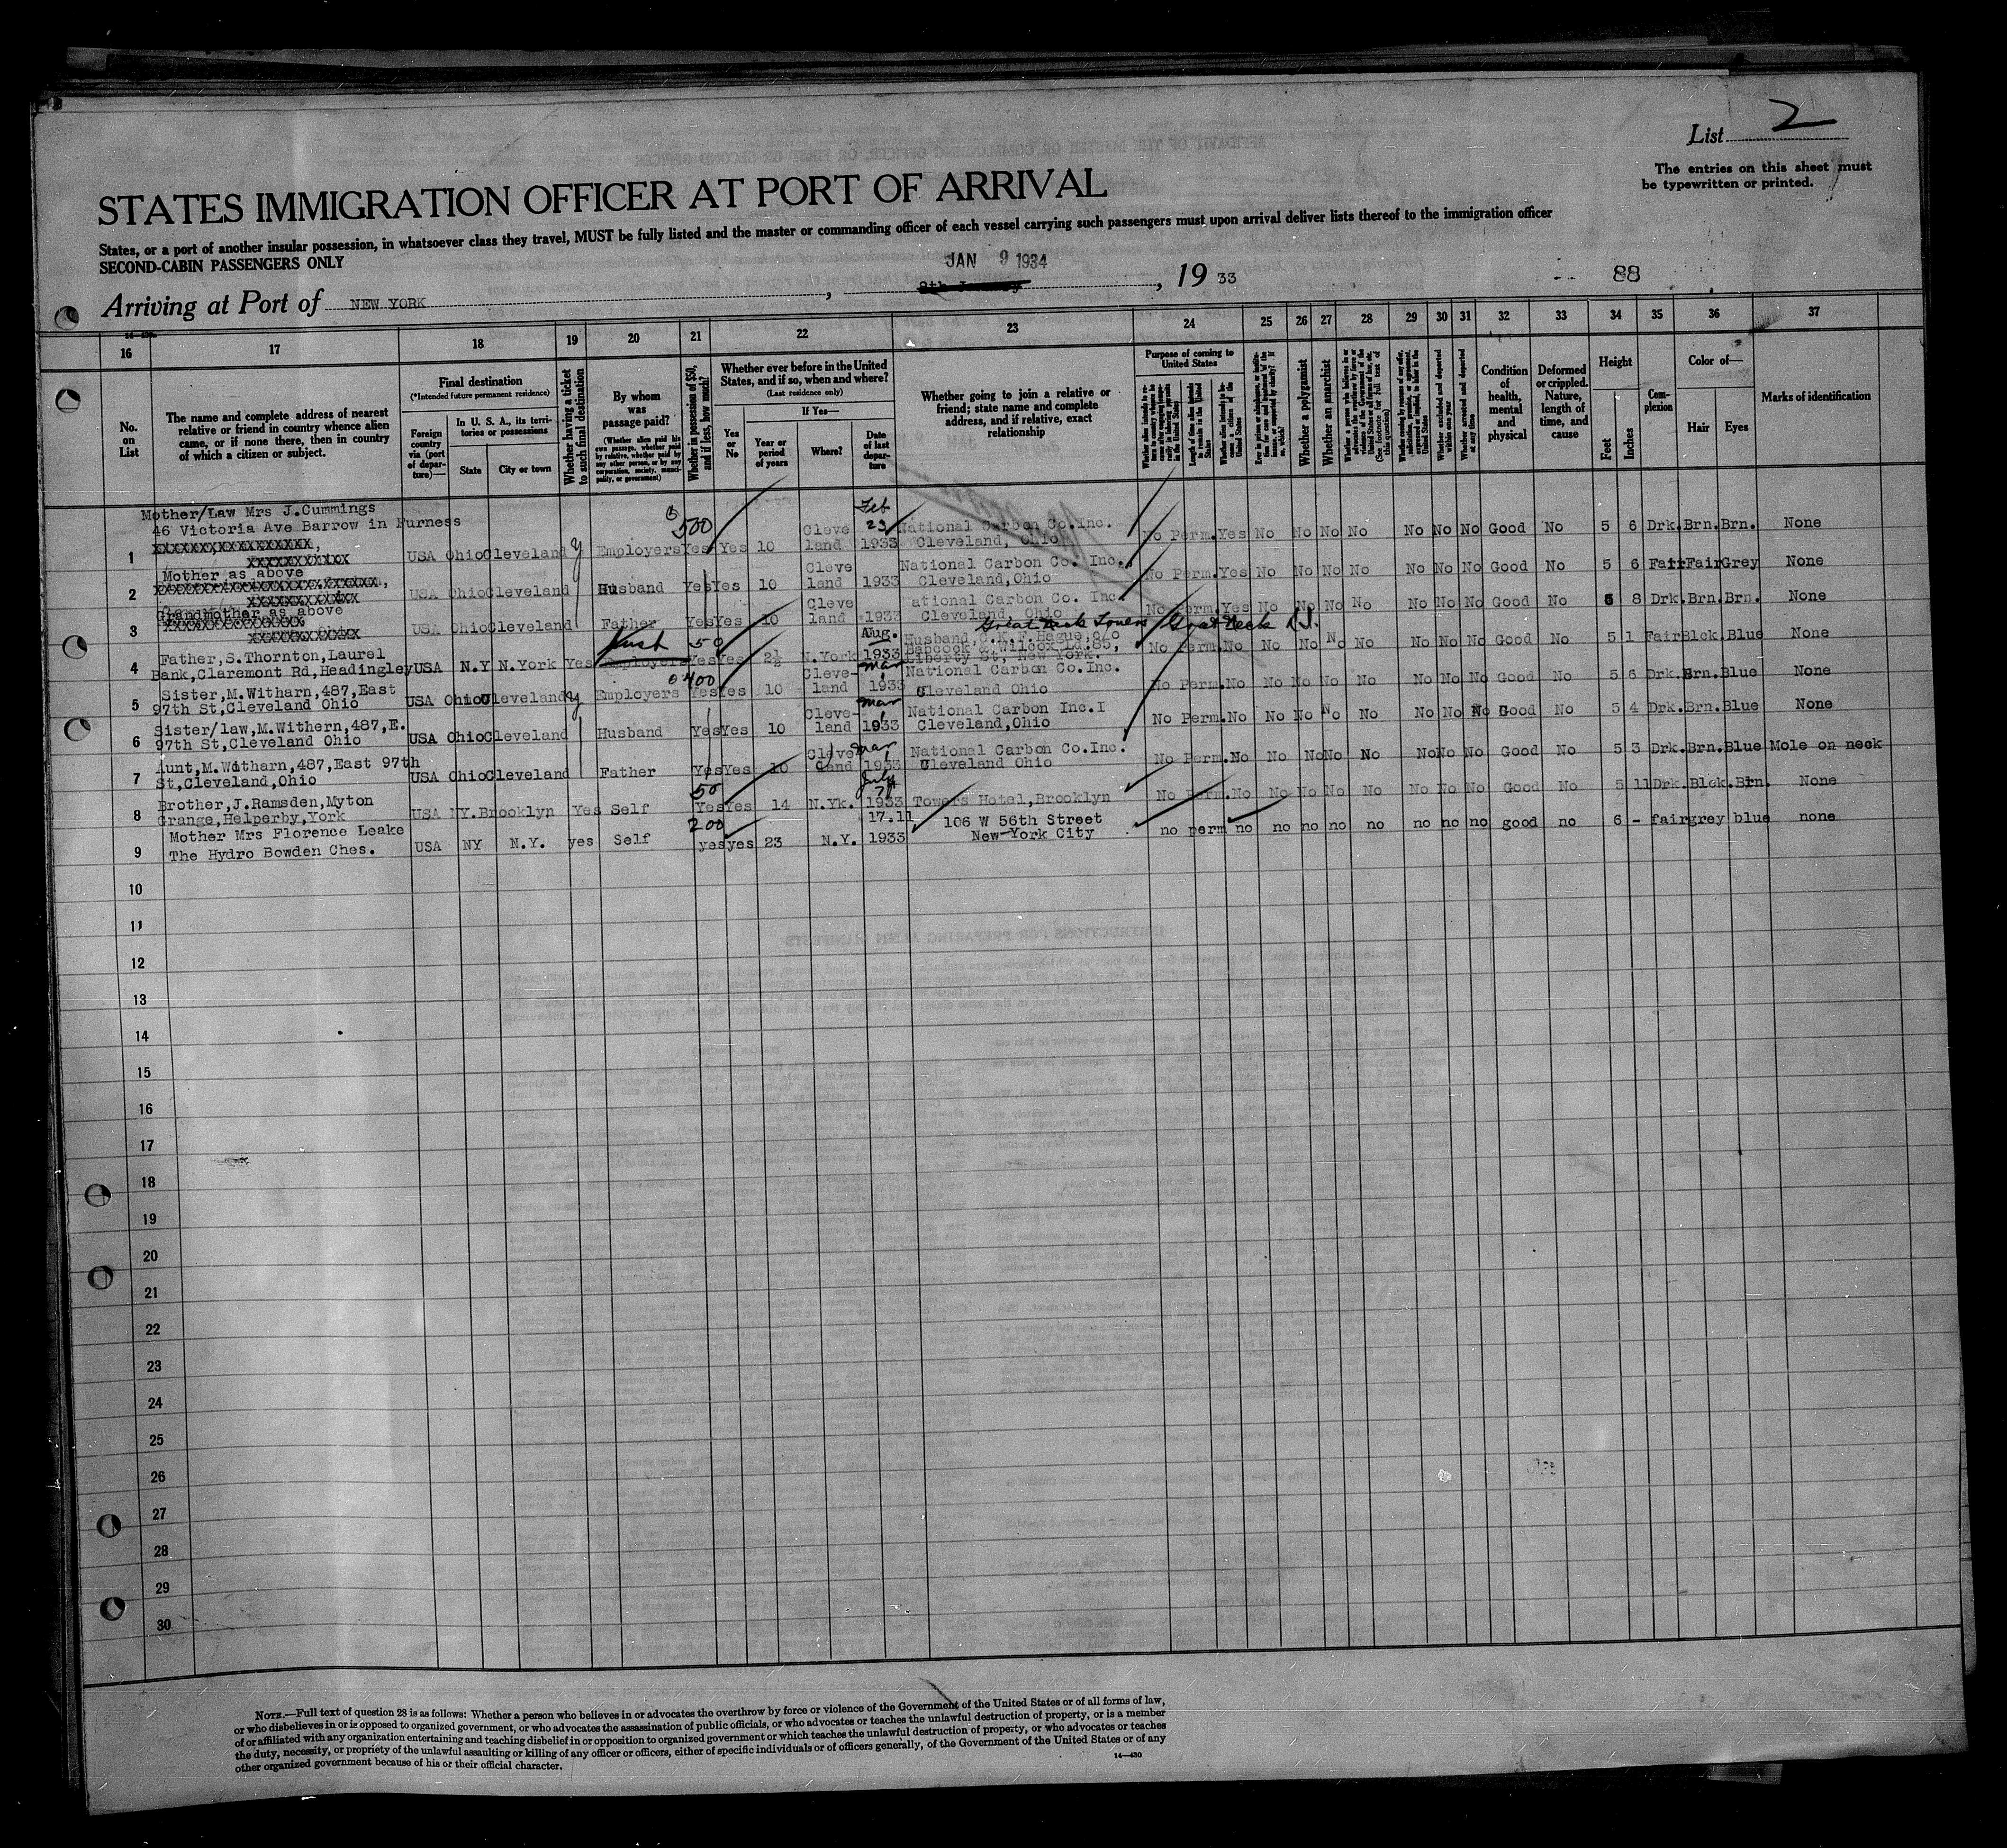 List 2
The entries on this sheet must
be typewritten or printed.
STATES IMMIGRATION OFFICER AT PORT OF ARRIVAL
States, or a port of another insular possession, in whatsoever class they travel, MUST be fully listed and the master or commanding officer of each vessel carrying such passengers must upon arrival deliver lists thereof to the immigration officer
SECOND-CABIN PASSENGERS ONLY
JAN 9 1934
88
Arriving at Port of NEW YORK , , 19 33
16 17 18 19 20 21 22 23 24 25 26 27 28 29 30 31 32 33 34 35 36 37
No. on List
The name and complete address of nearest
relative or friend in country whence alien
came, or if none there, then in country
of which a citizen or subject.
Final destination
(*Intended future permanent residence)
Foreign country via (port of departure)—
In U. S. A., its territories or possessions
State
City or town
Whether having a ticket to such final destination
By whom was passage paid?
(Whether alien paid his own passage, whether paid by relative, whether paid by any other person, or by any corporation, society, municipality, or government)
Whether in possession of $50, and if less, how much?
Whether ever before in the United
States, and if so, when and where?
(Last residence only)
Yes or No
If Yes—
Year or period of years
Where?
Date of last departure
Whether going to join a relative or
friend; state name and complete
address, and if relative, exact
relationship
Purpose of coming to United States
Whether a polygamist
Whether an anarchist
Whether excluded and deported within one year
Whether arrested and deported at any time
Condition of health, mental and physical
Deformed or crippled. Nature, length of time, and cause
Height
Feet
Inches
Complexion
Color of—
Hair
Eyes
Marks of identification
Mother/Law Mrs J.Cummings
46 Victoria Ave Barrow in Furness
1 USA Ohio Cleveland y Employers 500 Yes Yes 10 Cleveland Feb 23 1933 National Carbon Co.inc. Cleveland, Ohio No Perm. Yes No No No No No No No Good No 5 6 Drk. Brn. Brn. None
Mother as above
2 USA Ohio Cleveland Husband Yes Yes 10 Cleveland 1933 National Carbon Co. Inc. Cleveland,Ohio No Perm. Yes No No No No No No No Good No 5 6 Fair Fair Grey None
Grandmother as above
3 USA Ohio Cleveland Father Yes Yes 10 Cleveland 1933 ational Carbon Co. Inc Cleveland, Ohio No Perm. Yes No No No No No No No Good No 5 8 Drk. Brn. Brn. None
Great Neck Towers Great Neck L.I.
4 Father,S.Thornton,Laurel Bank,Claremont Rd,Headingley USA N.Y N.York Yes Husb Employers 50 Yes Yes 2½ N.York Aug. 1933 Husband,O.K.F.Hague,c/o Babcock & Wilcox Ld.85, Liberty St, New York. No Perm. No No No No No No No No Good No 5 1 Fair Blck. Blue None
5 Sister,M.Witharn,487,East 97th St,Cleveland Ohio USA Ohio Cleveland y Employers 400 Yes Yes 10 Cleve-land Mar 1 1933 National Carbon Co.Inc. Cleveland Ohio No Perm. No No No No No No No No Good No 5 6 Drk. Brn. Blue None
6 Sister/law,M.Withern,487,E. 97th St,Cleveland Ohio USA Ohio Cleveland Husband Yes Yes 10 Cleve-land Mar 1 1933 National Carbon Inc.I Cleveland,Ohio No Perm. No No No No No No No No Good No 5 4 Drk. Brn. Blue None
7 Aunt,M.Witharn,487,East 97th St,Cleveland,Ohio USA Ohio Cleveland Father Yes Yes 10 Cleveland Mar 1 1933 National Carbon Co.Inc. Cleveland Ohio No Perm. No No No No No No No No Good No 5 3 Drk. Brn. Blue Mole on neck
8 Brother,J.Ramsden,Myton Grange,Helperby,York USA NY. Brooklyn Yes Self 50 Yes Yes 14 N.Yk. July 1933 Towers Hotel,Brooklyn No Perm. No No No No No No No No Good No 5 11 Drk. Blck. Brn. None
9 Mother Mrs Florence Leake The Hydro Bowden Ches. USA NY N.Y. yes Self 200 yes yes 23 N.Y. 17.11 1933 106 W 56th Street New-York City no perm no no no no no no no no good no 6 - fair grey blue none
10
11
12
13
14
15
16
17
18
19
20
21
22
23
24
25
26
27
28
29
30
NOTE.—Full text of question 28 is as follows: Whether a person who believes in or advocates the overthrow by force or violence of the Government of the United States or of all forms of law,
or who disbelieves in or is opposed to organized government, or who advocates the assassination of public officials, or who advocates or teaches the unlawful destruction of property, or is a member
of or affiliated with any organization entertaining and teaching disbelief in or opposition to organized government or which teaches the unlawful destruction of property, or who advocates or teaches
the duty, necessity, or propriety of the unlawful assaulting or killing of any officer or officers, either of specific individuals or of officers generally, of the Government of the United States or of any
other organized government because of his or their official character.
14—430